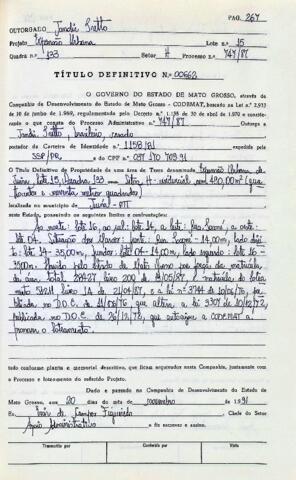 PAG. 267
OUTORGADO Jandir Pretto
Projeto Expansão Urbana Lote n.º 15
Quadra n.º 133 Setor H Processo n.º 747/87
TÍTULO DEFINITIVO N.º 00662
O GOVERNO DO ESTADO DE MATO GROSSO, através da
Companhia de Desenvolvimento do Estado de Mato Grosso - CODEMAT, baseado na Lei n.º 2.933
10 de junho de 1969, regulamentada pelo Decreto n.º 1.138 de 30 de abril de 1970 e constituindo
o que consta do Processo Administrativo n.º 747/87 Outorga a
Jandir Pretto, brasileiro, casado
portador da Carteira de Identidade n.º expedida pela
SSP/PR, e do CPF n.º
O Título Definitivo de Propriedade de uma área de Terras denominada Expansão Urbana de
Juína, lote 15, Quadra 133 - Setor H - industrial com 490,00 m² (qua
trocentos e noventa metros quadrados)
localizada no município de Juína - MT
neste Estado, possuindo os seguintes limites e confrontações:
Ao norte: lote 16, ao sul: lote 14, a leste: Rua a oeste:
lote 04. Situação dos lados: frente: Rua - 14,00m, lado direi
to: lote 14 - 35,00m, fundos: lote 04 - 14,00m, lado esquerdo: lote 16 -
35,00m. pelo Estado de Mato Grosso
livro 1A de 21/04/87, e a lei nº 3744 de 10/06/76, pu
blicada no D.O.E. de 11/06/76, que altera a lei 3307 de 10/12/72
publicada no D.O.E. de 26/12/78, que autoriza a CODEMAT a
promover o loteamento.
tudo conforme planta e memorial descritivo, que ficam arquivados nesta Companhia, juntamente com
o Processo e loteamento do referido Projeto.
Dado e passado na Companhia de Desenvolvimento do Estado de
Mato Grosso, aos 20 dias do mês de novembro de 1991
Eu, de Campos Figueiredo Chefe do Setor
Apoio Administrativo o fiz escrever e assino.
Transcrito por Conferido por Visto